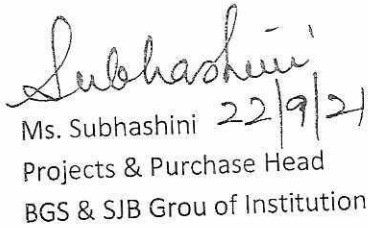 Subhashini
Ms. Subhashini 22/9/21
Projects & Purchase Head
BGS & SJB Grou of Institution